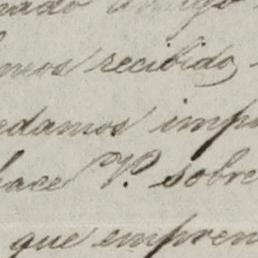 amigo
mos recibido,
edamos imp
hace V. sobre
que empren